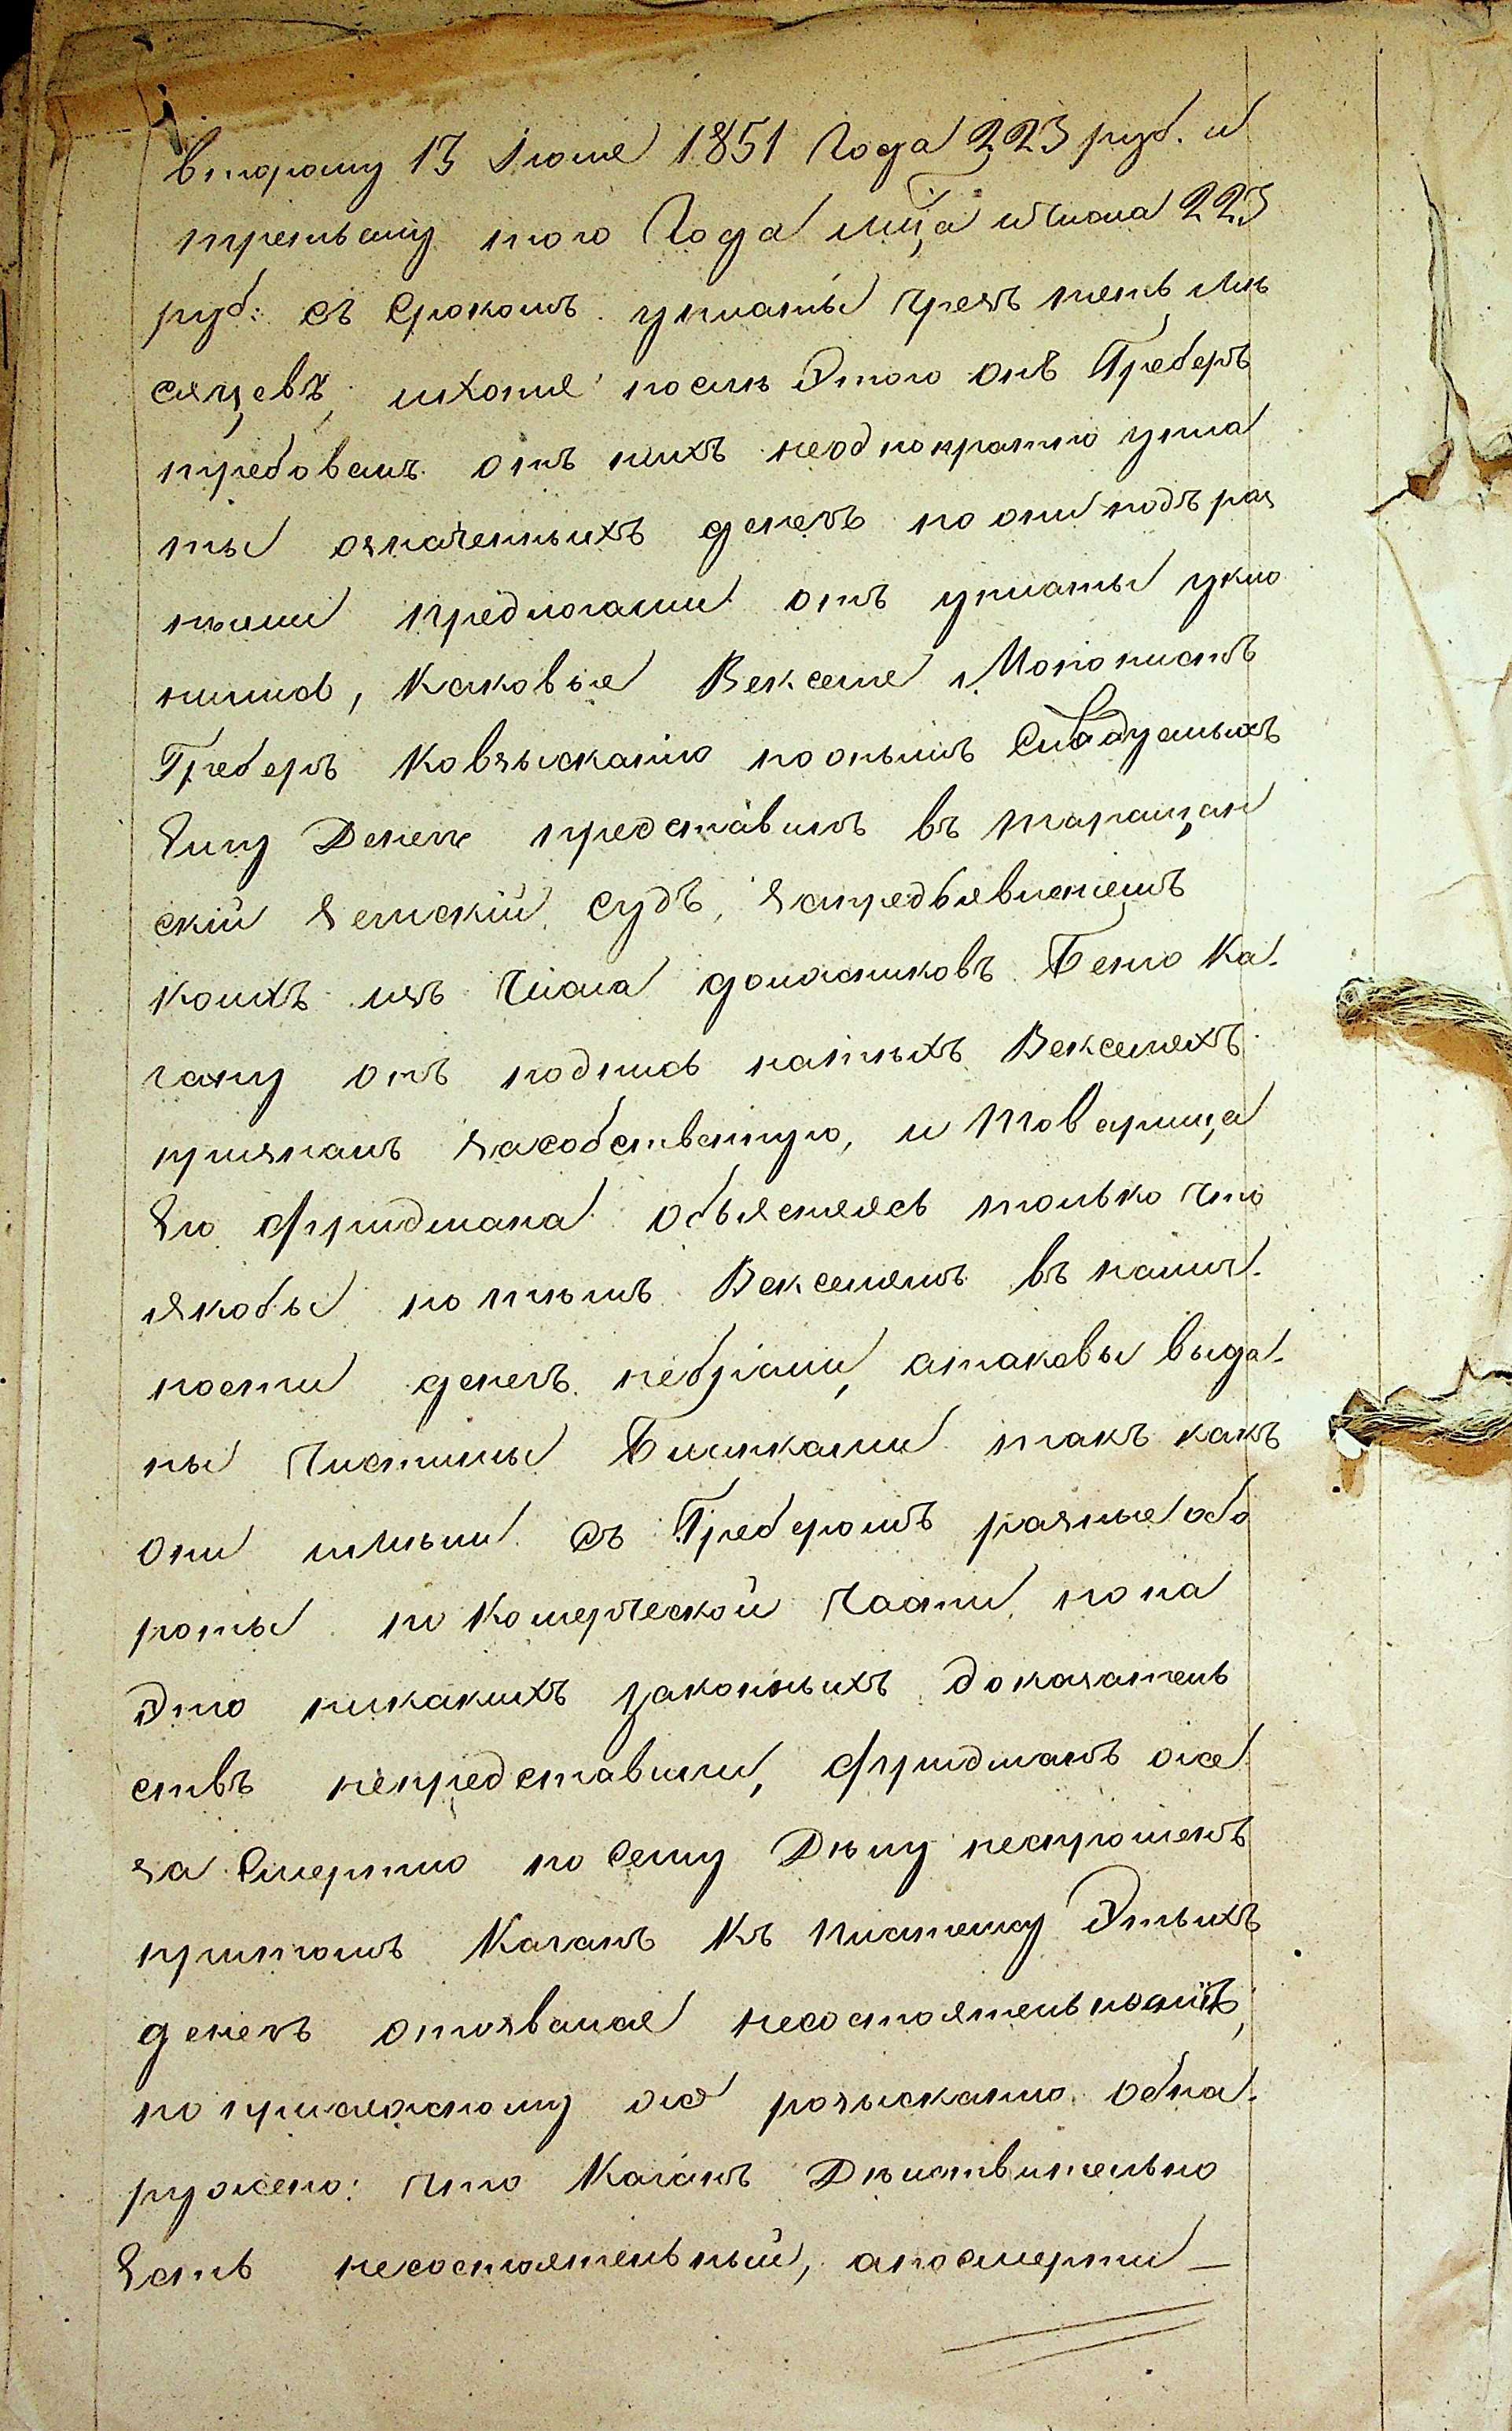 второму 13 Іюля 1851 Года 223 руб. и
третьему того Года мца и числа 223
руб: съ Срокомъ уплаты чрезъ пять мѣ
сяцевъ, ихотя послѣ Этого онъ Греберъ
требовалъ отъ нихъ неоднократно упла
ты означенныхъ денегъ но они подъ раз
ными предлогами отъ уплаты укло
нились, Каковые Векселя Молоплатъ
Греберъ Ковзысканію пооным Слѣдуемыхъ
Ему Денегъ представилъ въ Таращан
скій Земскій Судъ, Запредъявленіемъ
коихъ изъ Числа должниковъ Бенё Ка-
гану онъ подпись натѣхъ Векселяхъ
призналъ засобственную, и Товарища
Его Фридмана объясняясь только что
якобы по тѣмъ Векселямъ въ налич-
ности денегъ небрали, атаковы выда-
ны Чистыми Бланками такъ какъ
они имѣли Съ Греберомъ разные обо
роты по Комерческой Части, но на
Это никакихъ законныхъ доказатель
ствъ непредставили, Фридманъ оже
за Смертію по Сему Дѣлу неспрошенъ
притомъ Каганъ Къ Платежу Этыхъ
денегъ отозвался несостоятельностію,
по присяжному оже розысканію обна-
ружено: что Каганъ Дѣйствительно
Есть несостоятельный, апосмерти —